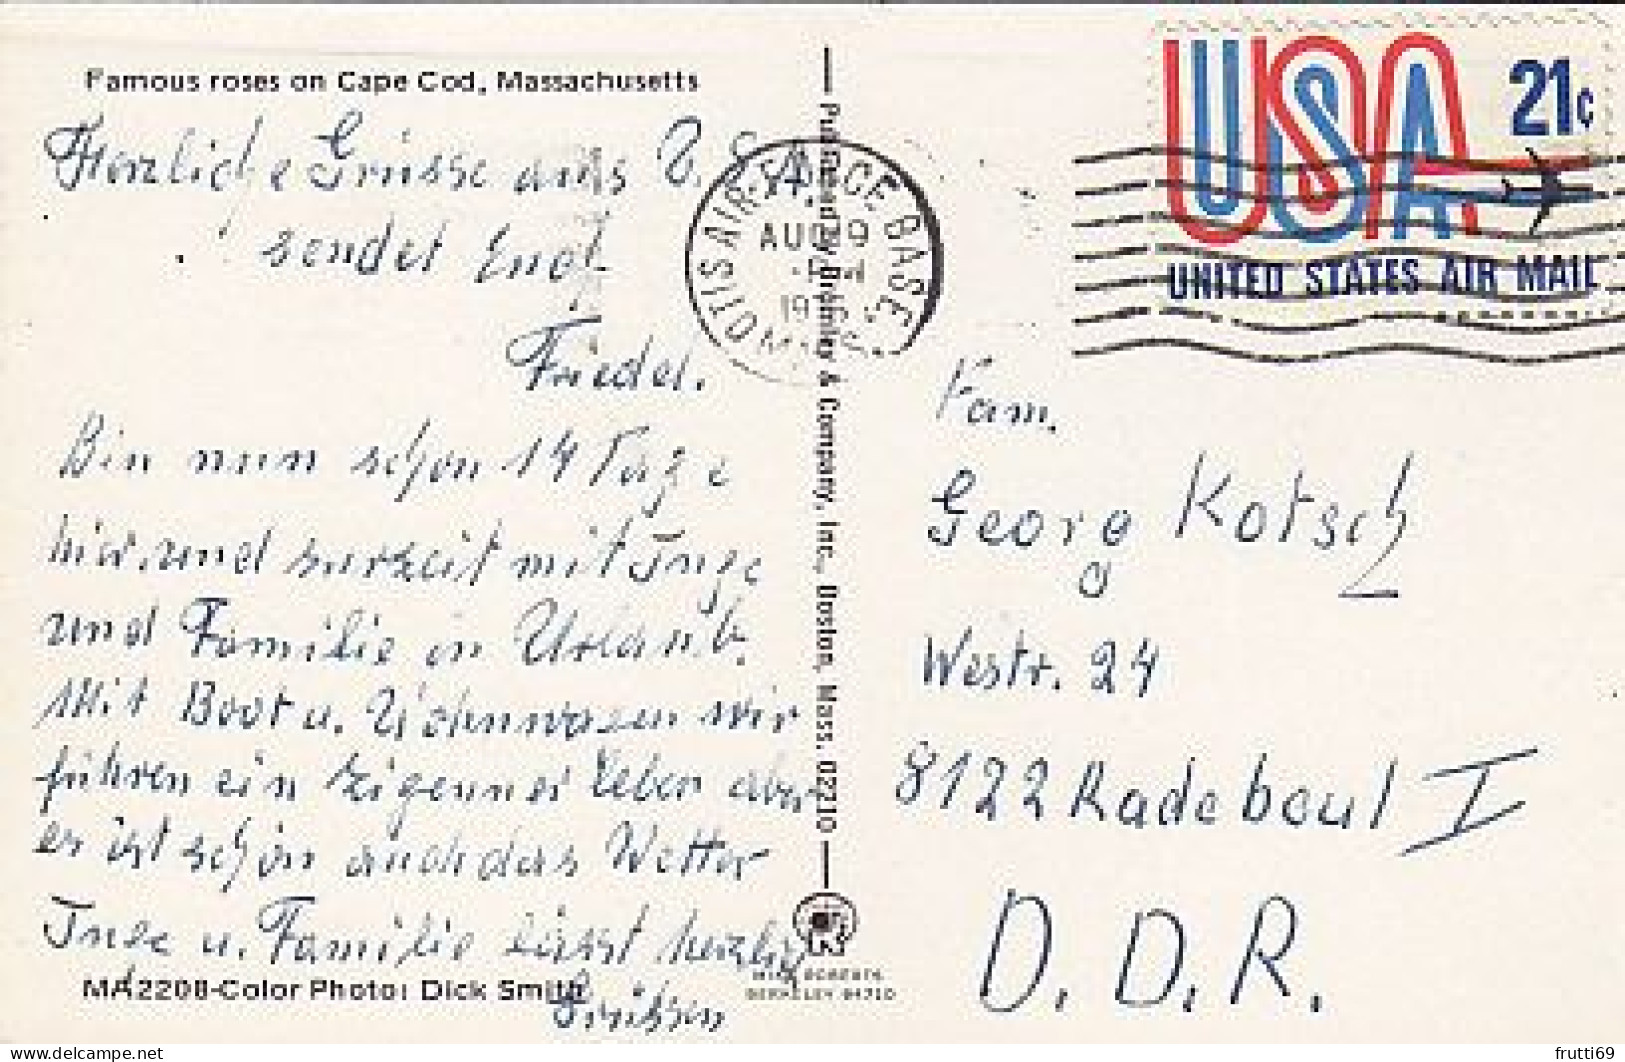 Famous roses on Cape Cod, Massachusetts
Herzliche Grüsse aus U.S.A.
sendet Euch
Friedel.
Bin nun schon 14 Tage
hier, und zurzeit mit Inge
und Familie in Urlaub.
Mit Boot u. Wohnwagen wir
führen ein Zigeuner leben aber
es ist schön auch das Wetter
Inge u. Familie lässt herzlich
Grüssen
MA2208-Color Photo: Dick Smith
Published by Bromley & Company, Inc., Boston, Mass. 02210
MIKE ROBERTS
BERKELEY 94710
OTIS AIR FORCE BASE, MASS.
AUG 9
PM
USA 21c
UNITED STATES AIR MAIL
Fam.
Georg Kotsch
Westr. 24
8122 Radebeul I
D.D.R.
delcampe.net
frutti69